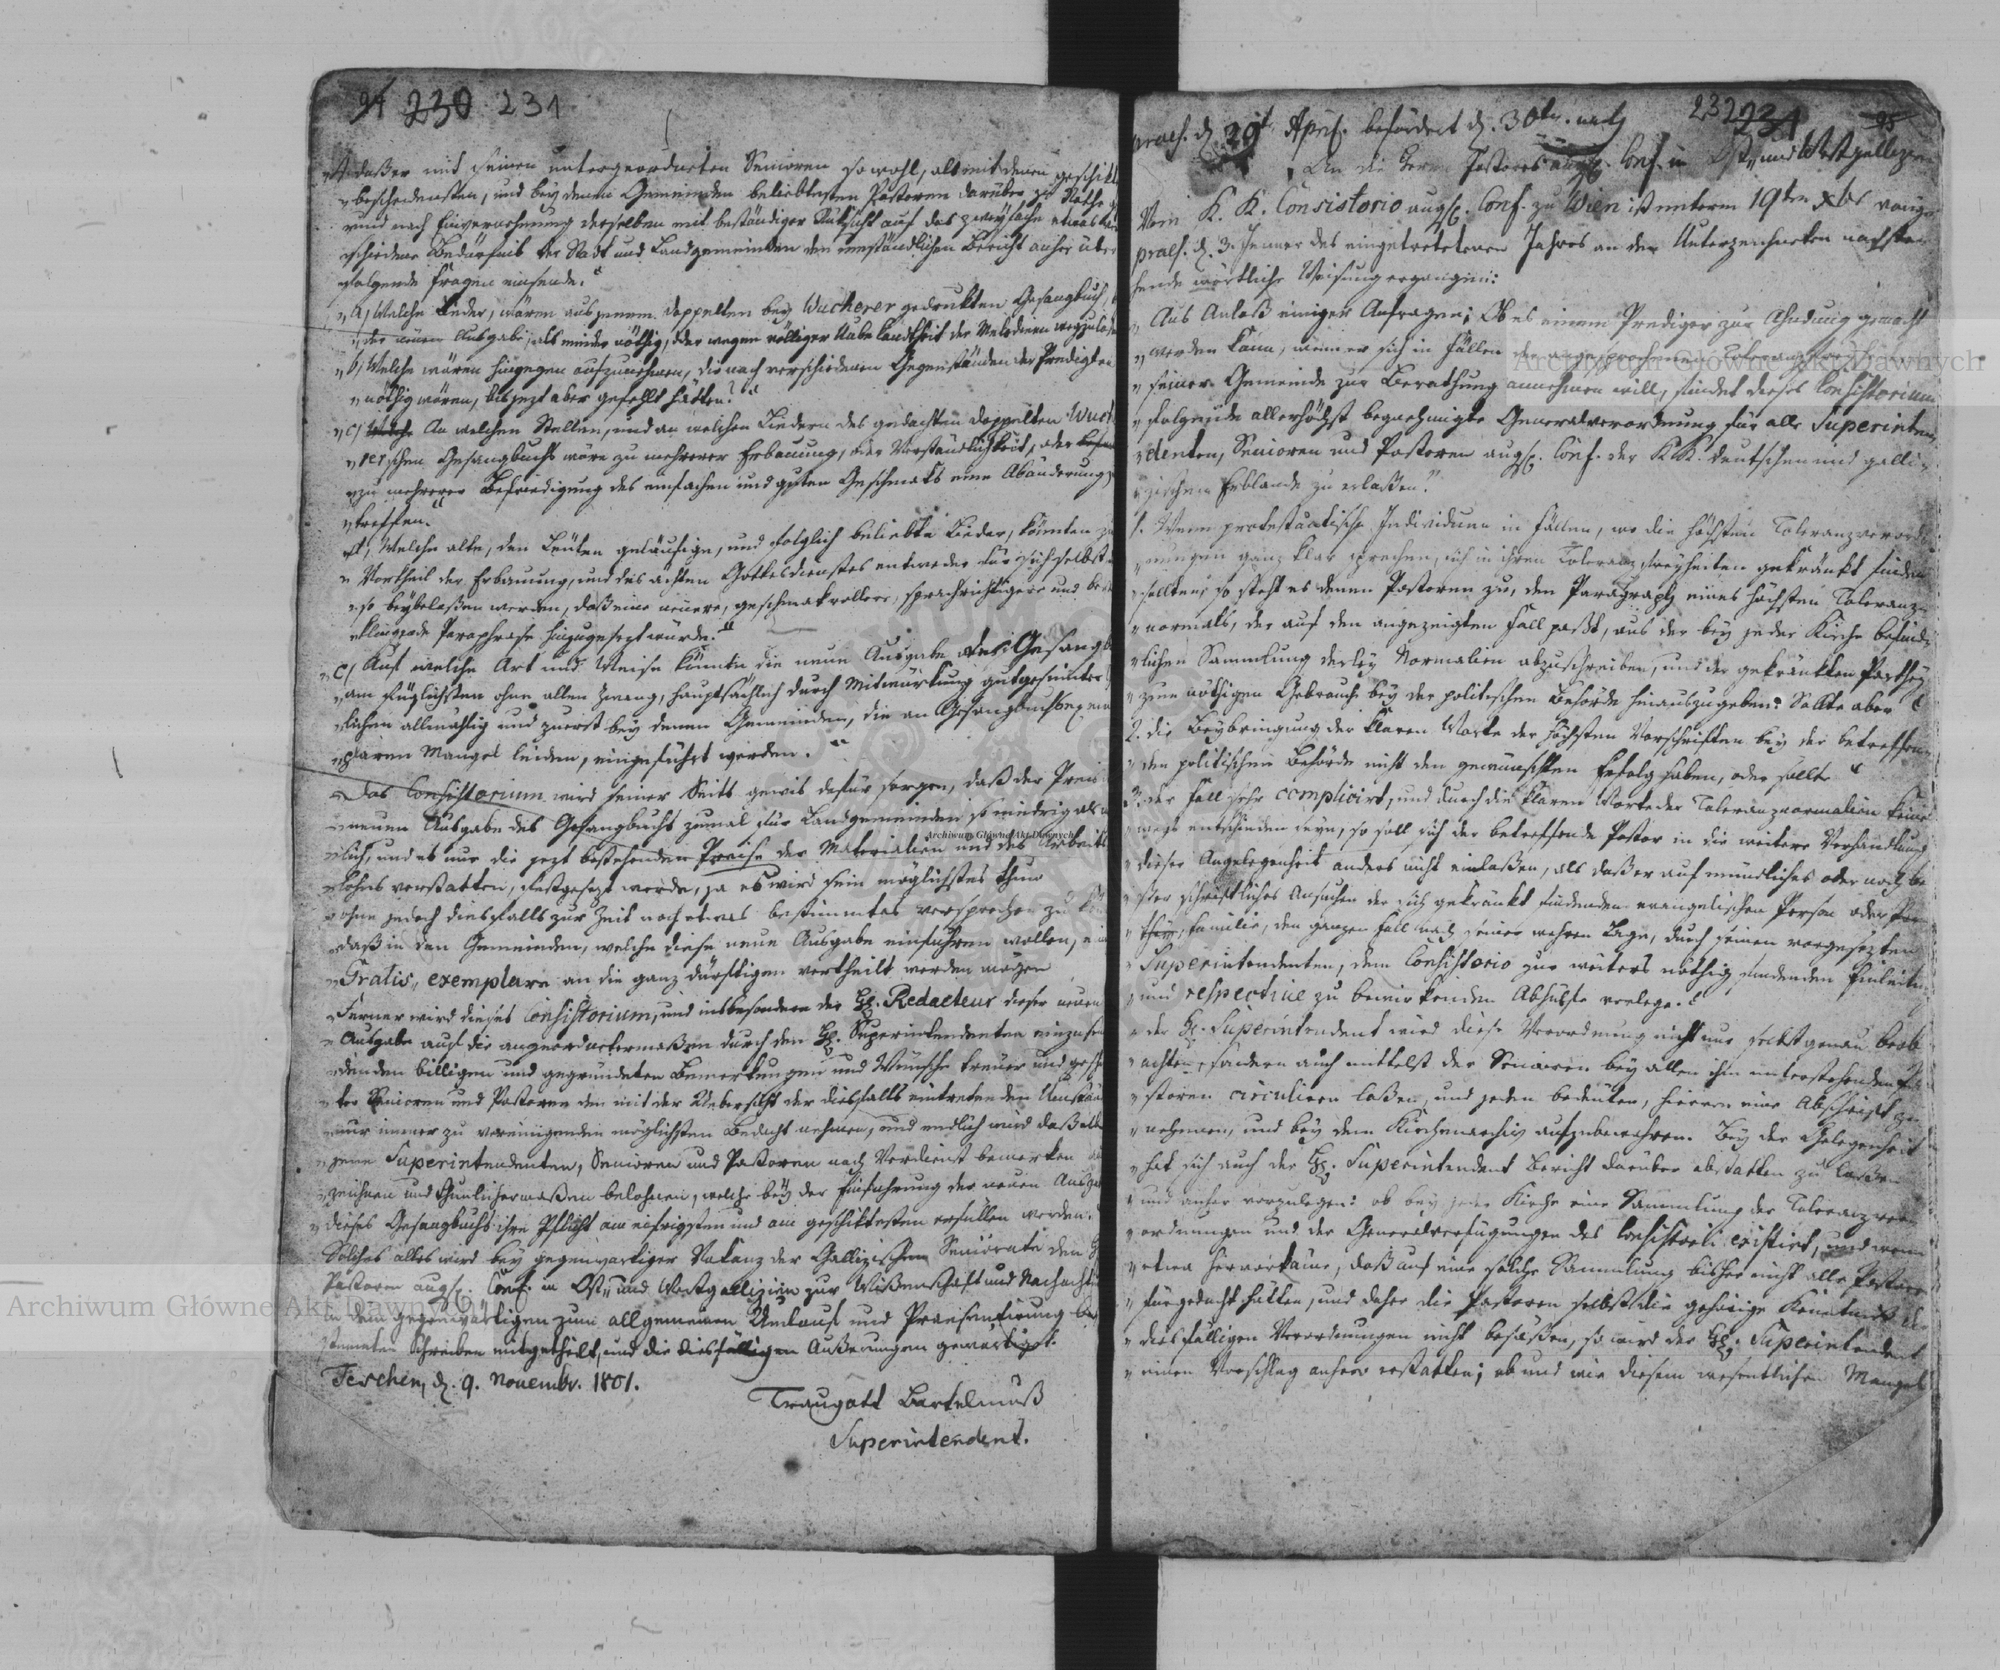 94 230 231
daß er mit seinen untergeordneten Senioren sowohl, als mit denen geschikt
bescheidensten, und bey denen Gemeinden beliebtesten Pastoren darüber zu Rathe
und nach Einvernehmung derselben mit beständiger Rüksicht auf das zweyfache etwas
schiedene Bedürfnis der Stadt und Landgemeinden den umständlichen Bericht anher über
folgende Fragen einsende.
a/ Welche Lieder, wären aus jenem doppelten bey Wucherer gedrukten Gesangbuch,
der neuen Ausgabe, als minder nöthig, oder wegen völliger Unbekandtheit der Melodieen wegzulaßen
b/ Welche wären hingegen aufzunehmen, die nach verschiedenen Gegenständen der Predigten
nöthig wären, bis jezt aber gefehlt hätten?
c/ An welchen Stellen, und an welchen Liedern des gedachten doppelten Wuch
rerschen Gesangbuchs wäre zu mehrerer Erbauung, oder Verständlichkeit, oder
zu mehrerer Befriedigung des einfachen und guten Geschmaks eine Abänderung zu
treffen.
d/ Welche alte, den Leuten geläufige, und folglich beliebte Lieder, könnten zum
Vortheil der Erbauung, und des ächten Gottesdienstes entweder für sich selbst
so beybelaßen werden, daß eine neuere, geschmakvollere, sprachrichtigere und
klingende Paraphrase hinzugesezt würde.
e/ Auf welche Art und Weise könnte die neue Ausgabe des Gesangb
am füglichsten ohne allen Zwang, hauptsächlich durch Mitwürkung gutgesinnter
lichen allmählig und zuerst bey denen Gemeinden, die an Gesangbuchsexem
plaren Mangel leiden, eingeführt werden.
Das Consistorium wird seiner Seits gewis dafür sorgen, daß der Preis
neuen Ausgabe des Gesangbuchs zumal für Landgemeinden so niedrig als
lich, und es nur die jezt bestehenden Preise der Materialien und des Arbeits
lohns verstatten, festgesezt werde, ja es wird sein möglichstes thun
ohne jedoch diesfalls zur Zeit noch etwas bestimmtes versprechen zu
daß in den Gemeinden, welche diese neue Ausgabe einführen wollen,
Gratis, exemplare an die ganz dürftigen vertheilt werden mögen
Ferner wird dieses Consistorium, und insbesondere der H. Redacteur dieser neuen
Ausgabe auf die angeordnetermaßen durch den H. Superintendenten einzusen
denden billigen und gegründeten Bemerkungen und Wünsche treuer und
ter Senioren und Pastoren den mit der Uebersicht der diesfalls eintretenden Umstän
nur immer zu vereinigenden möglichsten Bedacht nehmen, und endlich wird daßelbe
jene Superintendenten, Senioren und Pastoren nach Verdienst bemerken
zeichnen und thunlichermaßen belohnen, welche bey der Einführung der neuen Ausga
dieses Gesangbuchs ihre Pflicht am eifrigsten und am geschiktesten erfüllen werden.
Solches alles wird bey gegenwärtiger Vakanz der Gallizischen Seniorate den H
Pastoren augsp. Conf. in Ost„ und Westgallizien zur Wißenschaft und Nachacht
in dem gegenwärtigen zum allgemeinen Umlauf und Praesentirung be
stimmten Schreiben mitgetheilt, und die diesfälligen Äußerungen gewärtiget.
Teschen, d. 9. Novembr. 1801.
Traugott Bartelmuß
Superintendent.
232 231 95
praes. d. 29t April. befördert d. 30ten. nach
An die Herrn Pastores augsp. Conf. in Ost„ und Westgallizien
Vom K. K. Consistorio augsp. Conf. zu Wien ist unterm 19ten xbr vorig
praes. d. 3. Jenner des eingetretenen Jahres an den Unterzeichneten nachste
hende wörtliche Weisung ergangen:
Aus Anlaß einiger Anfragen; Ob es einem Prediger zur Ahndung gemacht
werden kann, wenn er sich in Fällen
seiner Gemeinde zur Berathung annehmen will, findet dieses Consistorium
folgende allerhöchst begnehmigte Generalverordnung für alle Superinten
denten, Senioren und Pastoren augsp. Conf. der K. K. deutschen und galli
zischen Erblande zu erlaßen.
1. Wenn protestantische Individuen in Fällen, wo die höchsten Toleranzverord
nungen ganz klar sprechen, sich in ihren Toleranzfreyheiten gekränkt finden
sollten, so steht es denen Pastoren zu, den Paragraph eines höchsten Toleranz
normals, der auf den angezeigten Fall paßt, aus der bey jeder Kirche befind
lichen Sammlung derley Normalien abzuschreiben, und der gekränkten Parthey
zum nöthigen Gebrauche bey der politischen Behörde hinauszugeben. Sollte aber
2. die Beybringung der klaren Worte der höchsten Vorschriften bey der betreffen
den politischen Behörde nicht den gewünschten Erfolg haben, oder sollte
3. der Fall sehr complicirt, und durch die klaren Worte der Toleranznormalien keines
wegs entschieden seyn, so soll sich der betreffende Pastor in die weitere Verhandlung
dieser Angelegenheit anders nicht einlaßen, als daß er auf mündliches oder noch be
ßer schriftliches Ansuchen der sich gekränkt findenden evangelischen Person oder
Familie, den ganzen Fall nach seiner wahren Lage, durch seinen vorgesezten
Superintendenten, dem Consistorio zur weiters nöthig findenden Einleitung
und respective zu bewirkenden Abhülfe vorlege.
der H. Superintendent wird diese Verordnung nicht nur selbst genau beob
achten, sondern auch mittelst der Senioren bey allen ihm unterstehenden Pa
storen circuliren laßen, und jeden bedeuten, hievon eine Abschrift zu
nehmen, und bey dem Kirchenarchiv aufzubewahren. Bey der Gelegenheit
hat sich auch der H. Superintendent Bericht darüber abstatten zu laßen
und anher vorzulegen: ob bey jeder Kirche eine Sammlung der Toleranzver
ordnungen und der Generalverfügungen des Consistorii existirt, und wenn
etwa hervorkäme, daß auf eine solche Sammlung bisher nicht alle Pastores
fürgedacht hätten, und daher die Pastoren selbst die gehörige Kenntniß der
diesfälligen Verordnungen nicht besäßen, so wird der H. Superintendent
einen Vorschlag anhero erstatten; ob und wie diesem wesentlichen Mangel
Archiwum Główne Akt Dawnych
Archiwum Główne Akt Dawnych
Archiwum Główne Akt Dawnych